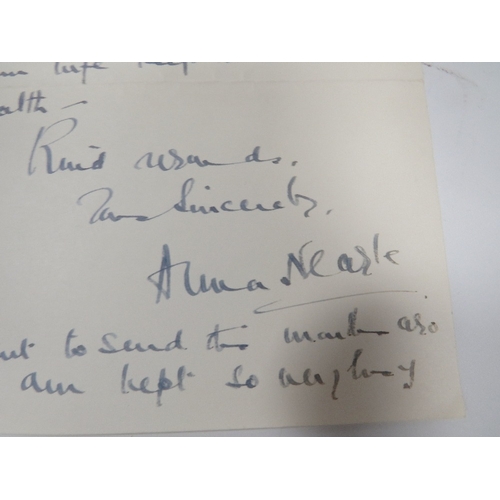 life
alth -
Kind regards.
Yours Sincerely,
Anna Neagle
to send this months ago
am kept so very busy